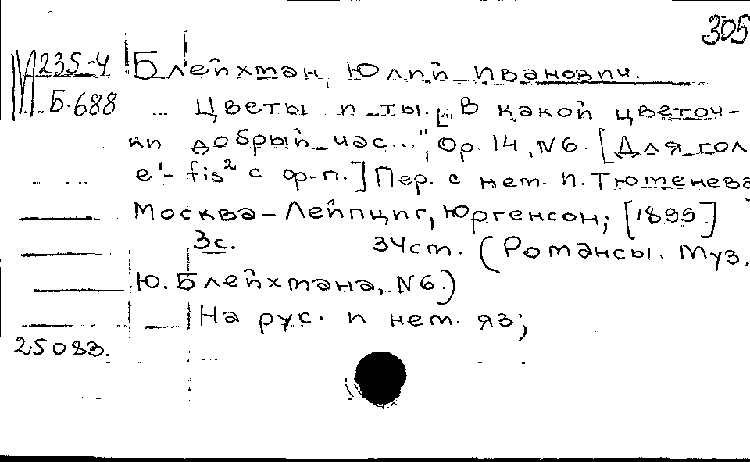 305
М 235-4 Блейхман, Юлий Иванович.
Б-688 ... Цветы и ты. ["В какой цветоч-
ки добрый час...", Ор. 14, N6. [Для гол.
e¹- fis² с ф-п.] Пер. с нем. И. Тюменева
Москва-Лейпциг, Юргенсон, [1899]
3с. 34см. (Романсы. Муз.
Ю. Блейхмана, N6.)
На рус. и нем. яз;
25083.